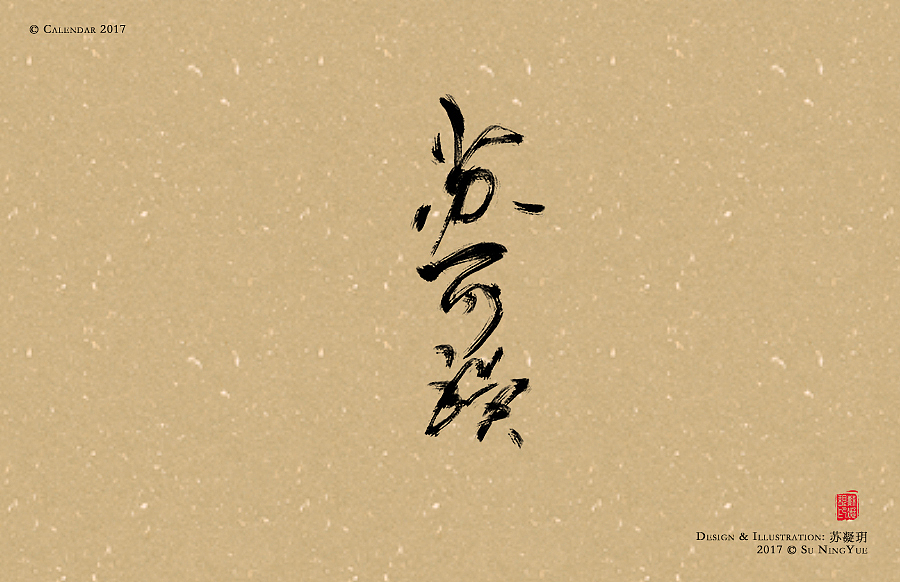 © Calendar 2017
苏可
Design & Illustration: 苏凝玥
2017 © Su NingYue